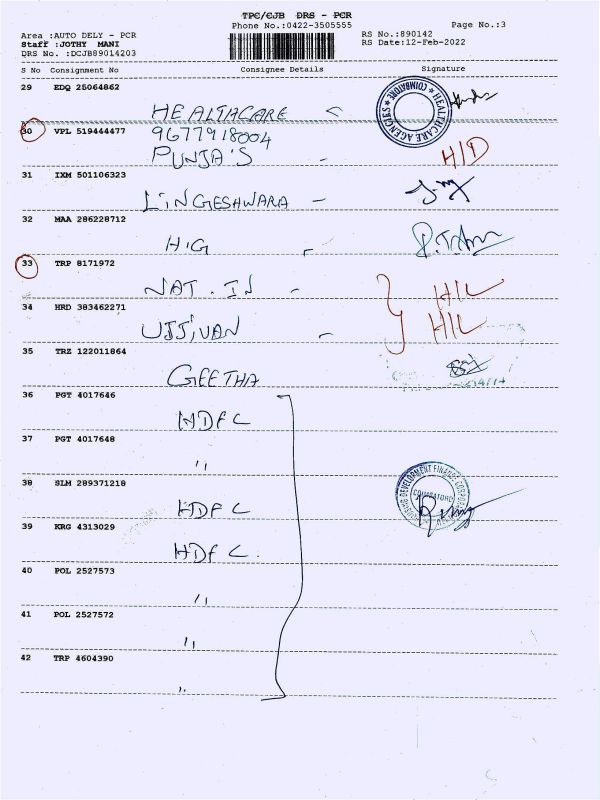 TPC/CJB DRS - PCR
Phone No.:0422-3505555
Page No.:3
Area :AUTO DELY - PCR
RS No.:890142
Staff :JOTHY MANI
RS Date:12-Feb-2022
DRS No. :DCJB89014203
S No Consignment No Consignee Details Signature
29 EDQ 25064862
HEALTHCARE
HEALTHCARE AGENCIES * COIMBATORE *
30 VPL 519444477 9677918004
PUNJA'S - H/D
31 IXM 501106323
LINGESHWARA -
32 MAA 286228712
H.G
33 TRP 8171972
NAT . IN - H/L
34 HRD 383462271
UJJIVAN - H/L
35 TRZ 122011864
GEETHA
36 PGT 4017646
HDFC
37 PGT 4017648
"
38 SLM 289371218
HDFC
HOUSING DEVELOPMENT FINANCE CORPORATION
COIMBATORE
39 KRG 4313029
HDFC.
40 POL 2527573
"
41 POL 2527572
"
42 TRP 4604390
"